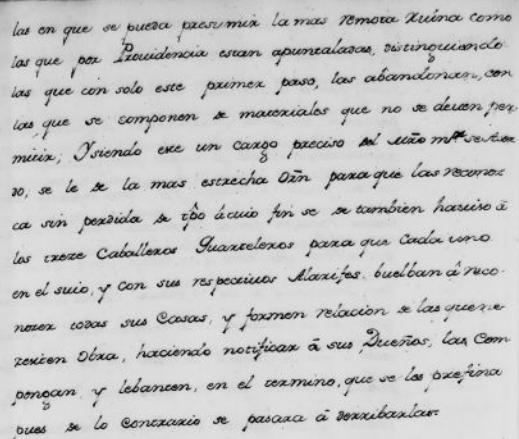 las en que se pueda presumir la mas remota Ruina como
las que por Providencia estan apuntaladas, distinguiendo
las que con solo este primer paso, las abandonan, con
las que se componen de materiales que no se deven per
mitir; Y siendo este un cargo preciso del Mro mor se Acor
do, se le de la mas estrecha Orn para que las reconoz
ca sin perdida de tpo á cuio fin se de tambien haviso á
los treze Caballeros Quarteleros para que Cada uno
en el suio, y con sus respectivos Alarifes buelban â reco
nozer todas sus Casas, y formen relacion de las que ne
zesiten Obra, haciendo notificar â sus Dueños, las Com
pongan, y lebanten, en el termino, que se les prefina
pues de lo Contrario se pasara â derribarlas